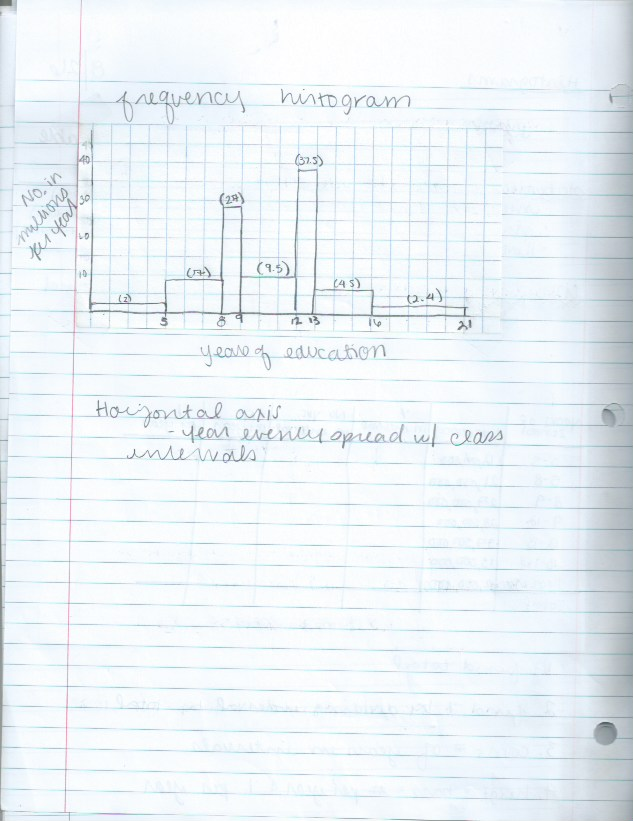 frequency histogram
No. in
millions
per year
40
30
20
10
(2)
(27)
(9.5)
(37.5)
(4.5)
(2.4)
5 8 9 12 13 16 21
years of education
Horizontal axis
- year evenly spread w/ class
intervals